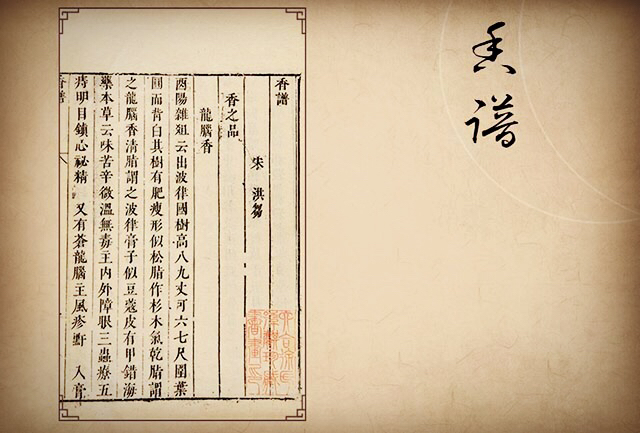 香谱
香譜
宋 洪芻
香之品
龍腦香
酉陽雜俎云出波律國樹高八九丈可六七尺圍葉
圓而背白其樹有肥瘦形似松脂作杉木氣乾脂謂
之龍腦香清脂謂之波律膏子似豆蔻皮有甲錯海
藥本草云味苦辛微溫無毒主內外障眼三蟲療五
痔明目鎮心祕精 又有蒼龍腦主風疹䵟 入膏
香譜